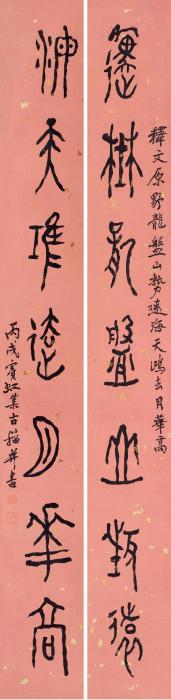 釋文原野龍盤山勢遠海天鴻去月華高
邍埜龍盤山埶遠
海天鴻去月華高
丙戌賓虹集古籀并書